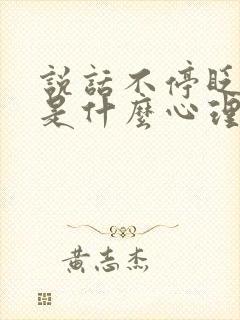 説話不停眨
是什麼心理
黃志杰